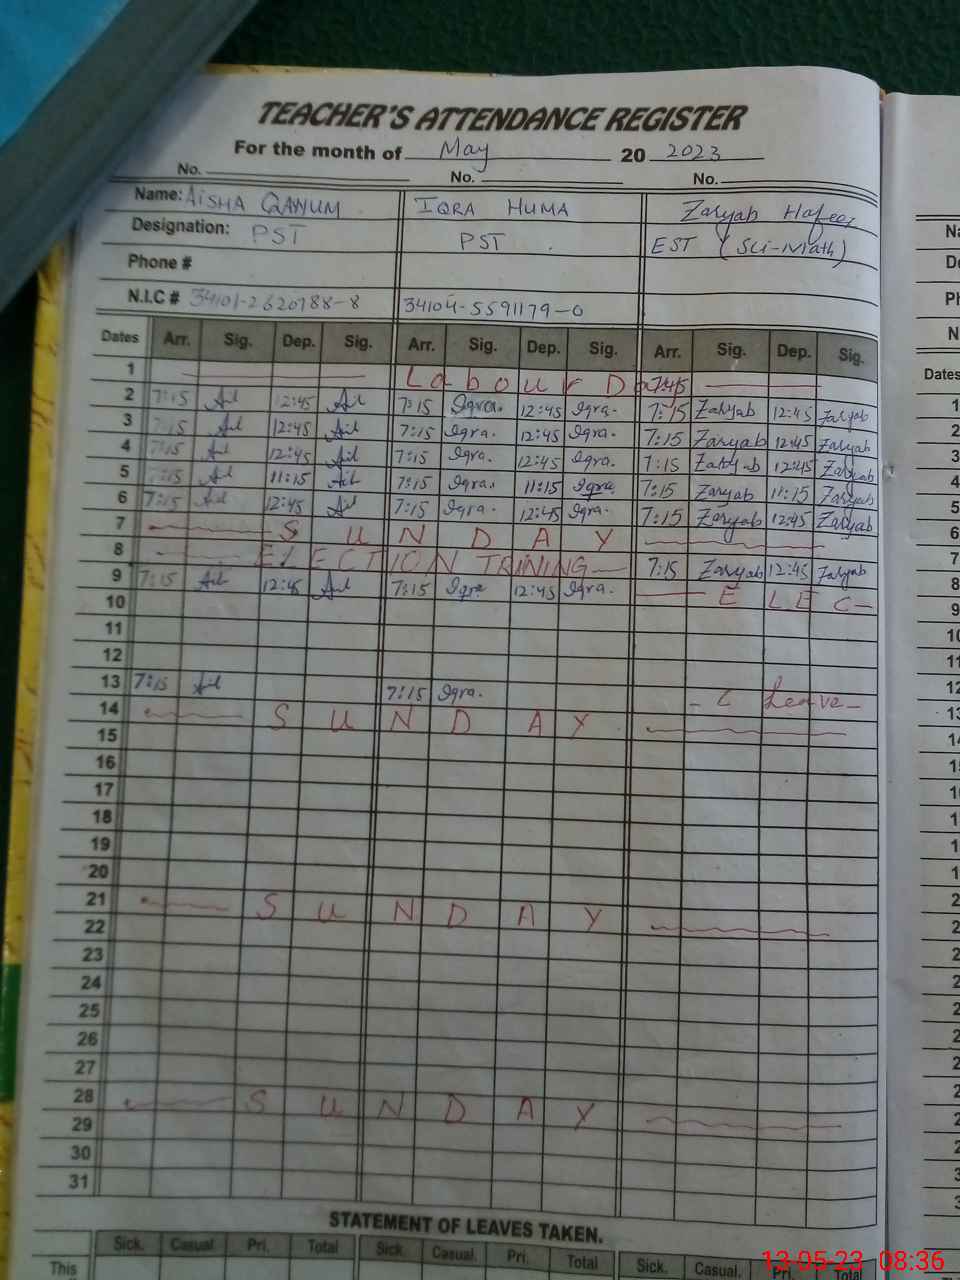 TEACHER'S ATTENDANCE REGISTER
For the month of May 20 2023
No. No. No.
Name: AISHA QAYYUM IQRA HUMA Zaryab Hafeez
Designation: PST PST EST (Sci-Math)
Phone #
N.I.C # 34101-2620788-8 34104-5591179-0
Dates Arr. Sig. Dep. Sig. Arr. Sig. Dep. Sig. Arr. Sig. Dep. Sig.
1 Labour Day
2 7:15 12:45 7:15 Iqra. 12:45 Iqra. 7:15 Zaryab 12:45 Zaryab
3 7:15 12:45 7:15 Iqra. 12:45 Iqra. 7:15 Zaryab 12:45 Zaryab
4 7:15 12:45 7:15 Iqra. 12:45 Iqra. 7:15 Zaryab 12:45 Zaryab
5 7:15 11:15 7:15 Iqra. 11:15 Iqra. 7:15 Zaryab 11:15 Zaryab
6 7:15 12:45 7:15 Iqra. 12:45 Iqra. 7:15 Zaryab 12:45 Zaryab
7 SUNDAY
8 ELECTION TRAINING 7:15 Zaryab 12:45 Zaryab
9 7:15 12:45 7:15 Iqra 12:45 Iqra. ELEC-
10
11
12
13 7:15 7:15 Iqra. - C Leave -
14 SUNDAY
15
16
17
18
19
20
21 SUNDAY
22
23
24
25
26
27
28 SUNDAY
29
30
31
STATEMENT OF LEAVES TAKEN.
Sick. Casual Pri. Total Sick. Casual. Pri. Total Sick. Casual. Pri. Total
This
13-05-23 08:36
Na
De
Ph
N
Dates